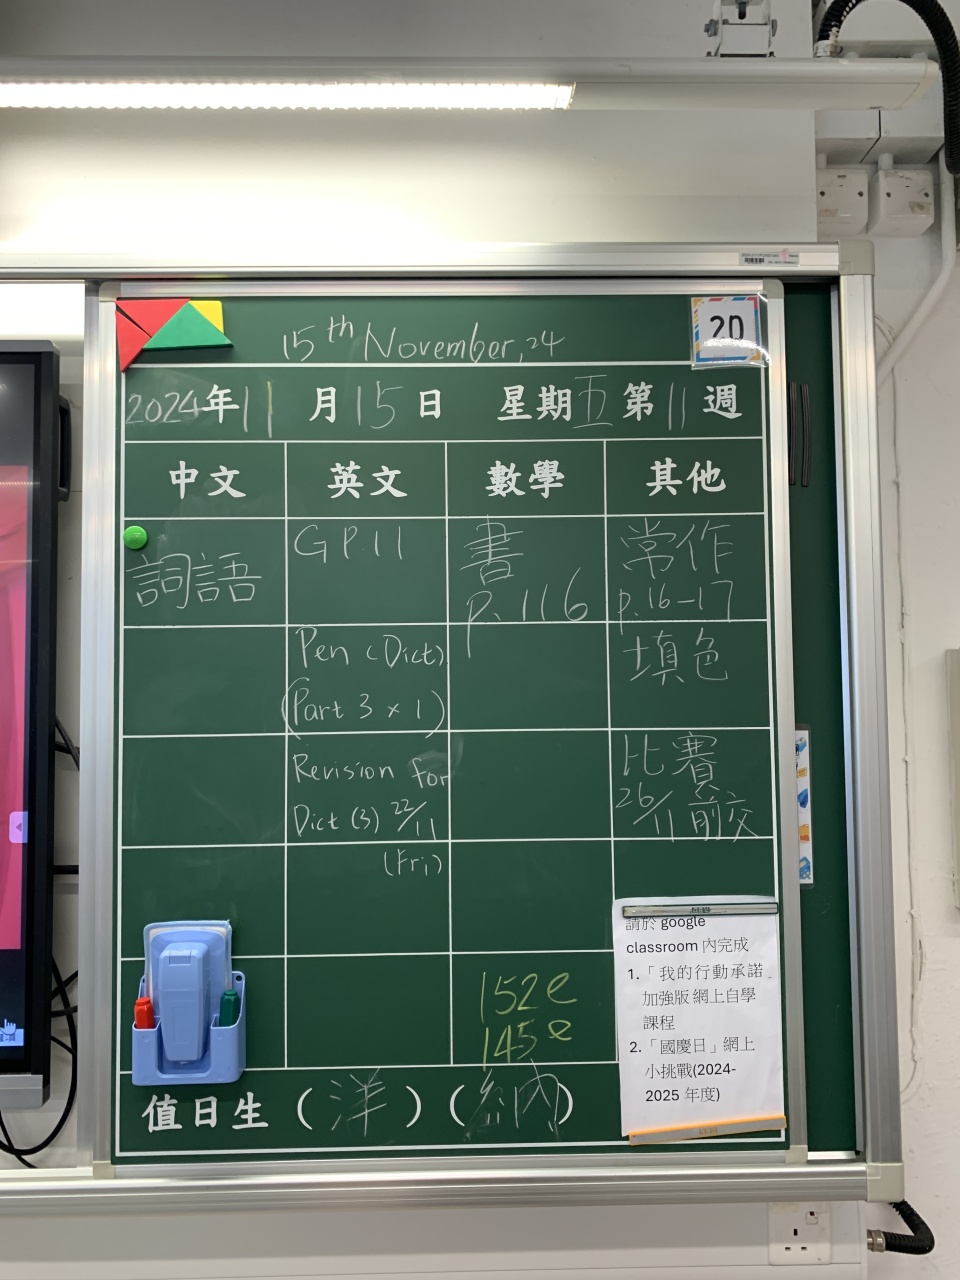 15th November, 24
20
2024年11月15日 星期五第11週
中文 英文 數學 其他
詞語
GP.11
書
p. 116
常作
p.16-17
Pen (Dict)
(Part 3 x 1)
填色
Revision for
Dict (3) 22/11
(Fri)
比賽
26/11前交
152e
145e
請於 google
classroom 內完成
1.「我的行動承諾
加強版網上自學
課程
2.「國慶日」網上
小挑戰(2024-
2025 年度)
值日生(洋)( )